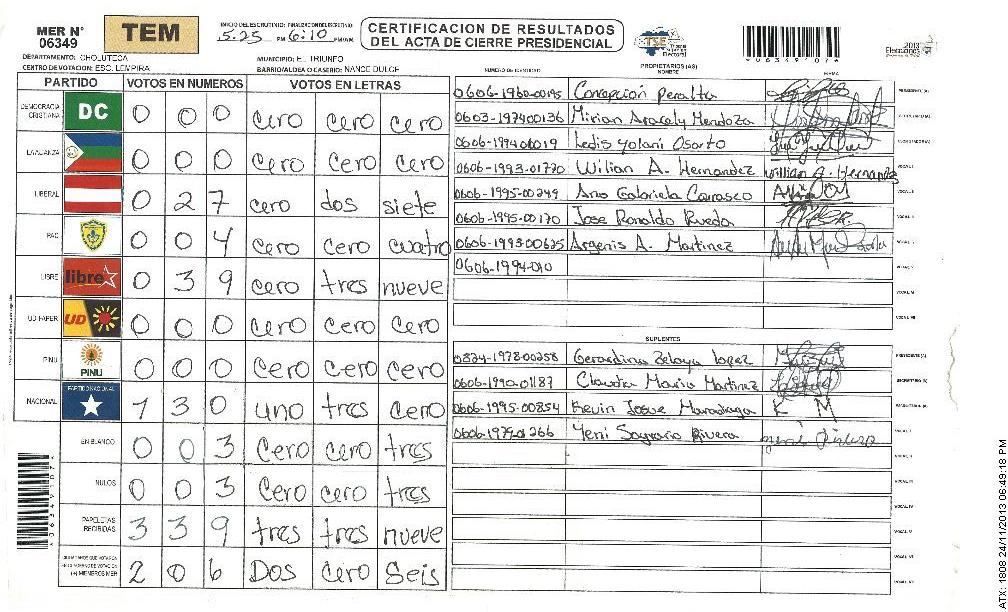 MER N° 06349
TEM
INICIO DEL ESCRUTINIO: FINALIZACION DEL ESCRUTINIO
5:25 PM 6:10 PM/AM
CERTIFICACION DE RESULTADOS
DEL ACTA DE CIERRE PRESIDENCIAL
TSE
*06349107*
2013
DEPARTAMENTO: CHOLUTECA
MUNICIPIO: EL TRIUNFO
CENTRO DE VOTACION: ESC. LEMPIRA
BARRIO/ALDEA O CASERIO: NANCE DULCE
PARTIDO VOTOS EN NUMEROS VOTOS EN LETRAS
DEMOCRACIA CRISTIANA DC 0 0 0 cero cero cero
LA ALIANZA 0 0 0 cero cero cero
LIBERAL 0 2 7 cero dos siete
PAC 0 0 4 cero cero cuatro
LIBRE libre 0 3 9 cero tres nueve
UD-FAPER UD 0 0 0 cero cero cero
PINU PINU 0 0 0 cero cero cero
NACIONAL PARTIDO NACIONAL 1 3 0 uno tres cero
EN BLANCO 0 0 3 cero cero tres
NULOS 0 0 3 cero cero tres
PAPELETAS RECIBIDAS 3 3 9 tres tres nueve
CIUDADANOS QUE VOTARON EN CUADERNO DE VOTACION (+) MIEMBROS MER 2 0 6 Dos cero Seis
NUMERO DE IDENTIDAD PROPIETARIOS (AS) NOMBRE FIRMA
0606-1960-00195 Concepcion Peralta PRESIDENTE (A)
0603-1979-00136 Mirian Aracely Mendoza SECRETARIO (A)
0606-1994-00019 Ledis yolani Osorto ESCRUTADOR (A)
0606-1993-01770 Wilian A. Hernandez Willian A. Hernandez VOCAL I
0606-1995-00249 Ana Gabriela Carrasco VOCAL II
0606-1995-00170 Jose Ronaldo Rueda VOCAL III
0606-1993-00635 Argenis A. Martinez VOCAL IV
0606-1994-010 VOCAL V
VOCAL VI
VOCAL VII
SUPLENTES
0824-1978-00258 Gerardina Zelaya lopez PRESIDENTE (A)
0606-1990-01187 Claudia Maria Martinez SECRETARIO (A)
0606-1995-00854 Kevin Josue K M ESCRUTADOR (A)
0606-1979-01266 Yeni Sagrario Rivera VOCAL I
VOCAL II
VOCAL III
VOCAL IV
VOCAL V
VOCAL VI
VOCAL VII
*06349107*
ATX: 1808 24/11/2013 06:49:18 PM